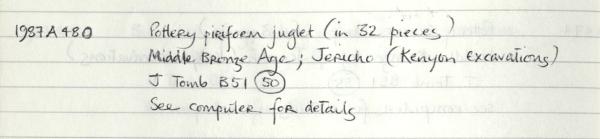 1987A480 Pottery piriform juglet (in 32 pieces)
Middle Bronze Age; Jericho (Kenyon excavations)
J Tomb B51 50
See computer for details